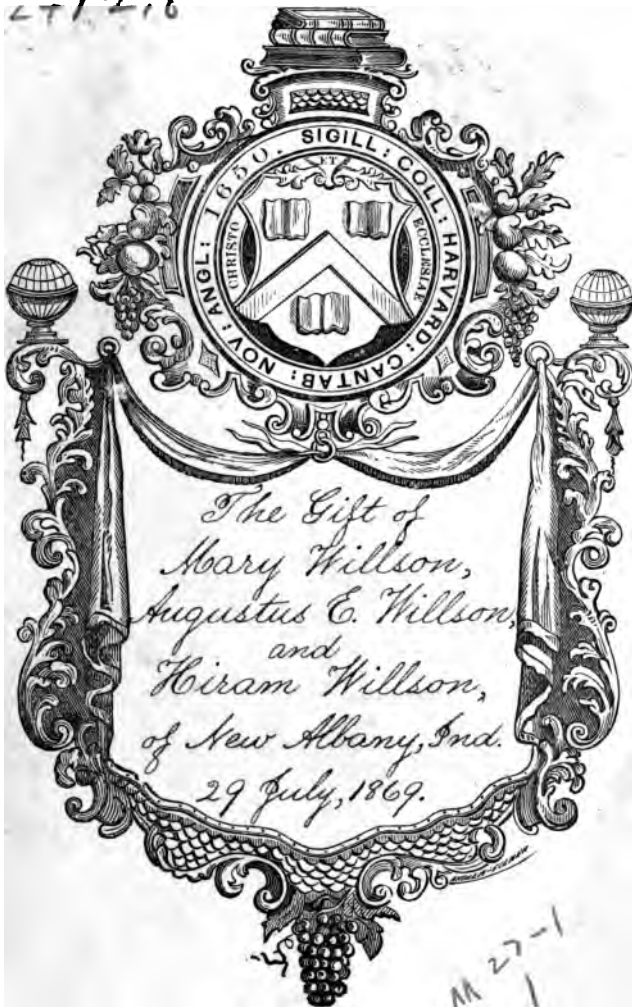 SIGILL: COLL: HARVARD: CANTAB: NOV: ANGL: 1650.
ET
CHRISTO
ECCLESIAE
The Gift of
Mary Willson,
Augustus E. Willson,
and
Hiram Willson,
of New Albany, Ind.
29 July, 1869.